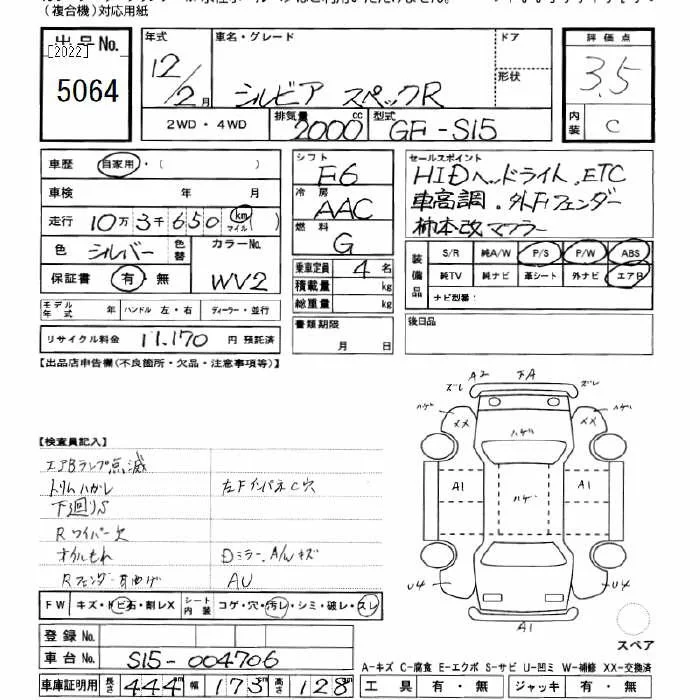 （複合機）対応用紙
出品No.
［2022］
5064
年式 12/2月
車名・グレード シルビア スペックR
ドア
形状
評価点 3.5
内装 C
2WD・4WD 排気量 2000cc 型式 GF-S15
車歴 自家用・（ ）
車検 年 月
走行 10万3千650 km マイル
色 シルバー 色替 カラーNo. WV2
保証書 有・無
モデル年式 年 ハンドル 左・右 ディーラー・並行
リサイクル料金 11,170 円 預託済
シフト F6
冷房 AAC
燃料 G
乗車定員 4 名
積載量 kg
総重量 kg
書類期限
月 日
セールスポイント
HIDヘッドライト、ETC
車高調、外Fフェンダー
柿本改マフラー
装備品
S/R 純A/W P/S P/W ABS
純TV 純ナビ 革シート 外ナビ エアB
ナビ型番：
後日品
【出品店申告欄（不良箇所・欠品・注意事項等）】
【検査員記入】
エアBランプ点滅
トリムハガレ 左Fインパネ C穴
下廻りS
Rワイパー欠
オイルもれ Dミラー、A/Wキズ
Rフェンダー 曲げ AU
FW キズ・トビ石・割レX シート内装 コゲ・穴・汚レ・シミ・破レ・スレ
登録No.
車台No. S15-004706
車庫証明用 長さ 444 幅 173 高さ 128
ズレ A2 下A ズレ
ハゲ XX ハゲ XX ハゲ
A1 ハゲ A1
U4 U4
A1
スペア
A-キズ C-腐食 E-エクボ S-サビ U-凹ミ W-補修 XX-交換済
工具 有・無 ジャッキ 有・無